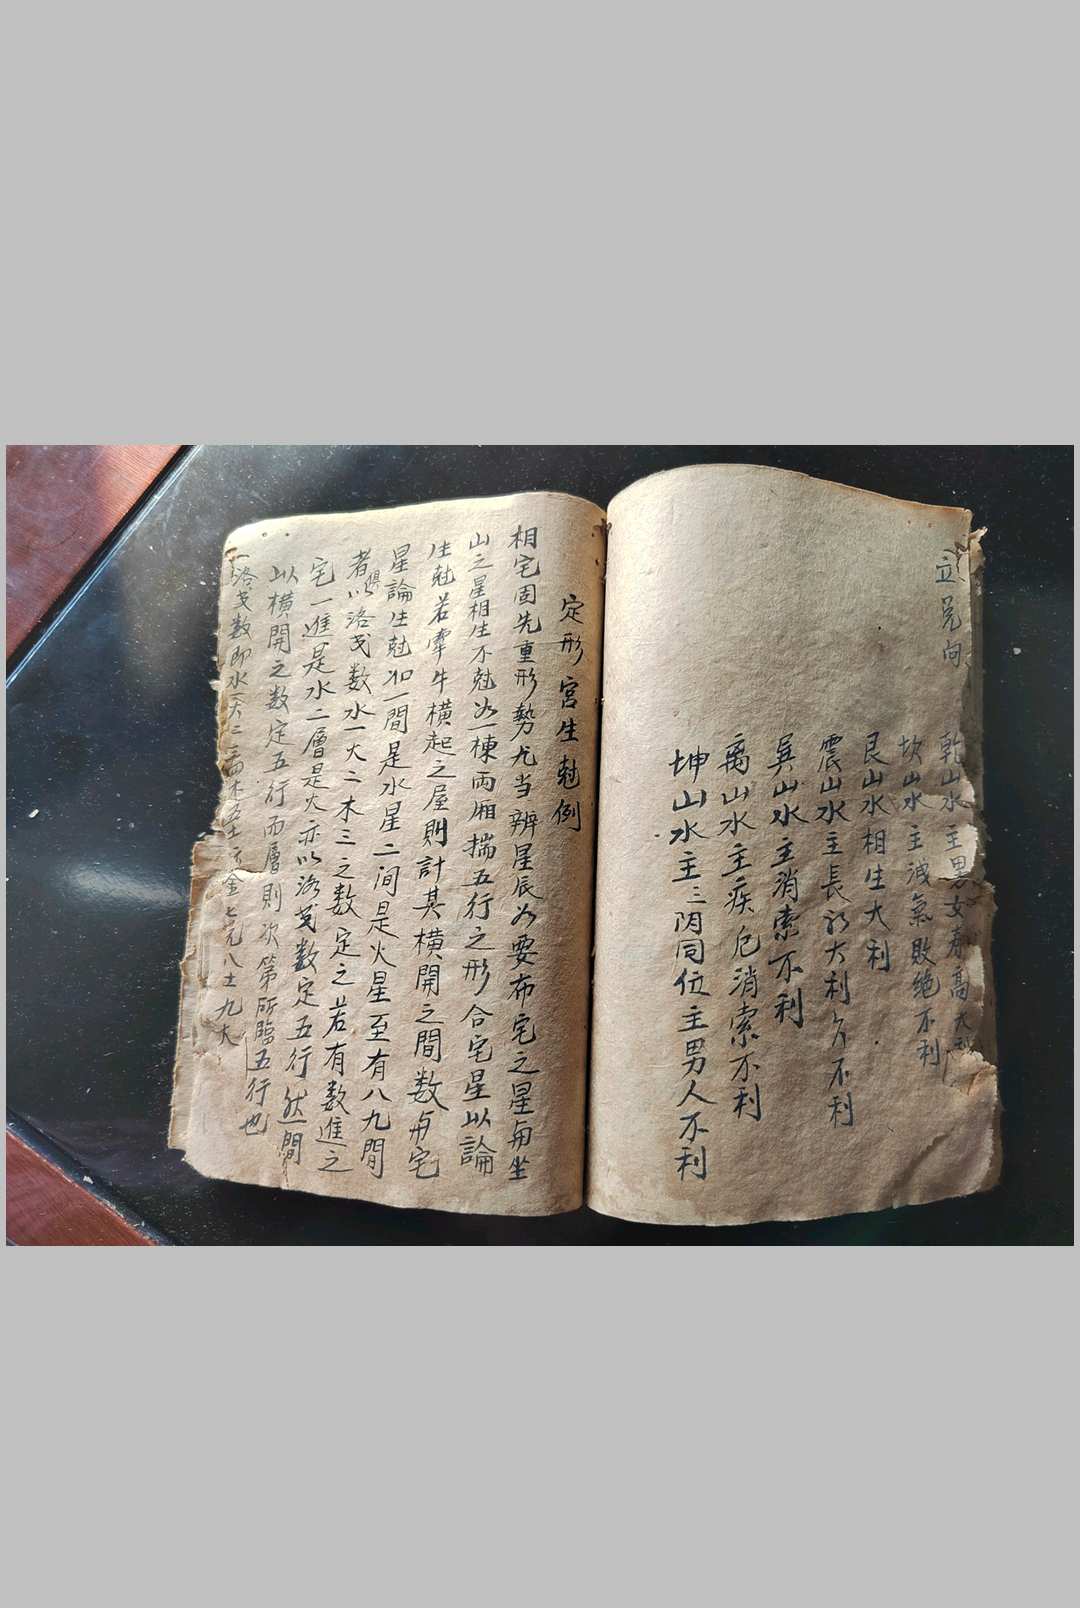 立兑向
乾山水主男女寿高大利
坎山水主洩氣敗绝不利
艮山水相生大利
震山水主長 大利 不利
巽山水主消索不利
离山水主疾厄消索不利
坤山水主三阴同位主男人不利
定形宮生尅例
相宅固先重形勢尤当辨星辰必要布宅之星与坐
山之星相生不尅必一棟両厢揣五行之形合宅星以論
生尅若牽牛橫起之屋則計其橫開之間数与宅
星論生尅如一間是水星二间是火星至有八九間
者俱以洛 数水一火二木三之数定之若有数進之
宅一進是水二層是火亦以洛 数定五行然一間
以橫開之数定五行而層則次第所臨五行也
洛 数即水一火二 木 五土六金七 八土九火